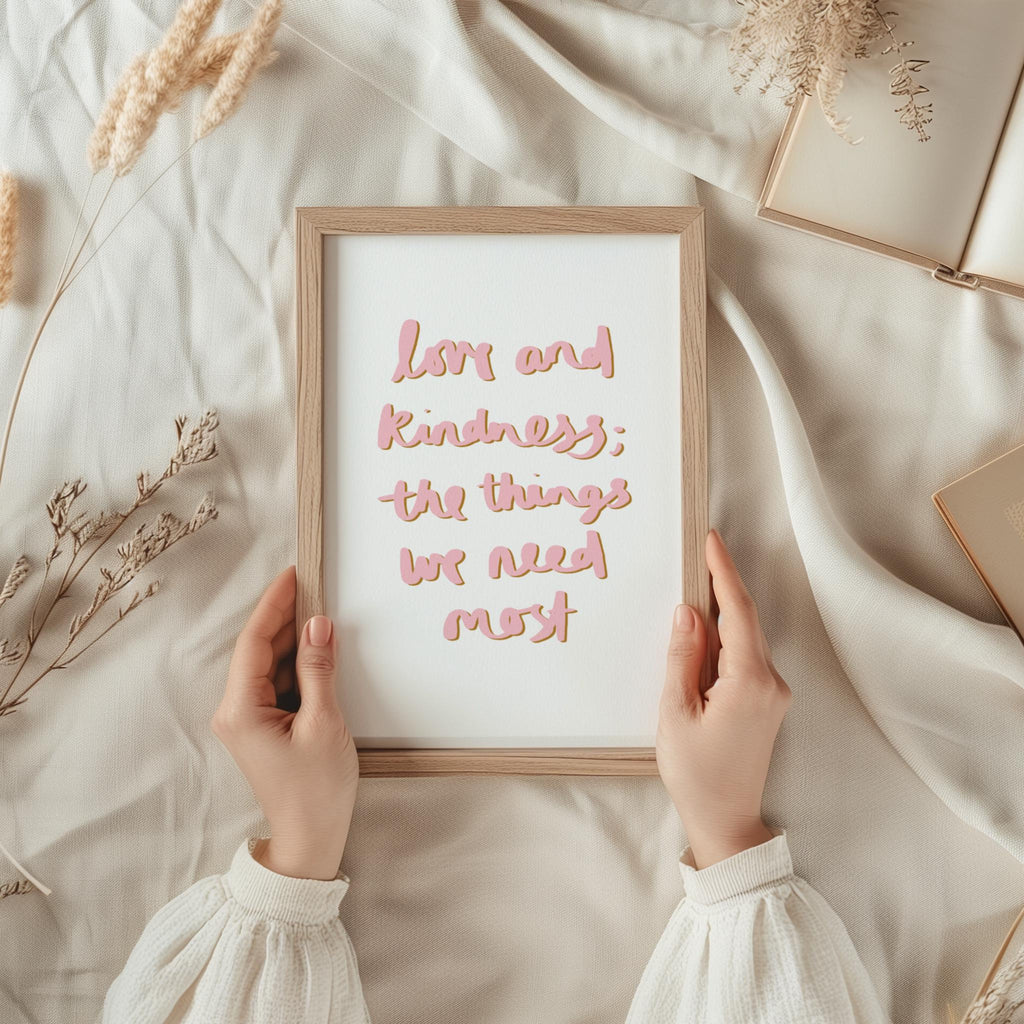 love and
kindness;
the things
we need
most